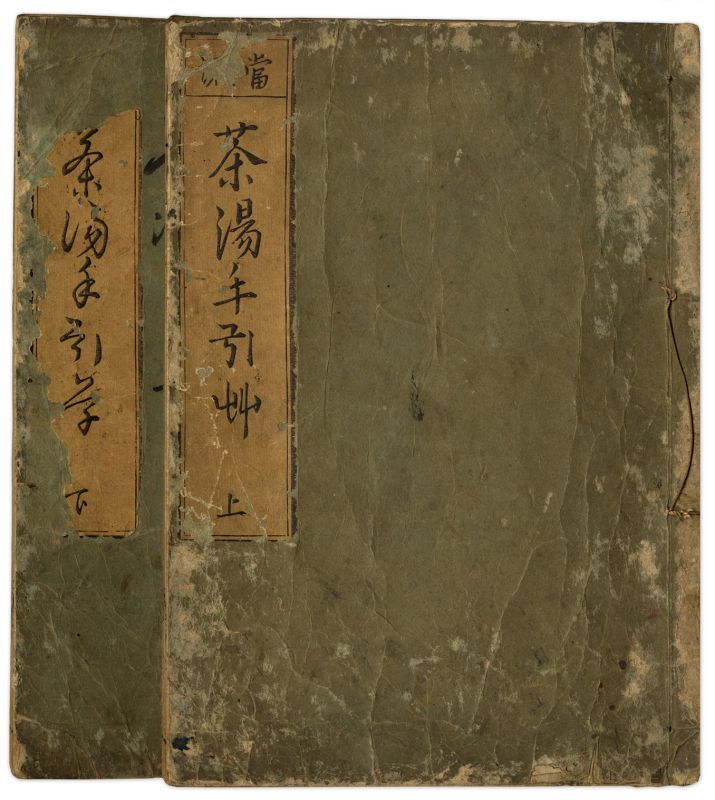 當流
茶湯手引艸
上
茶湯手引草
下